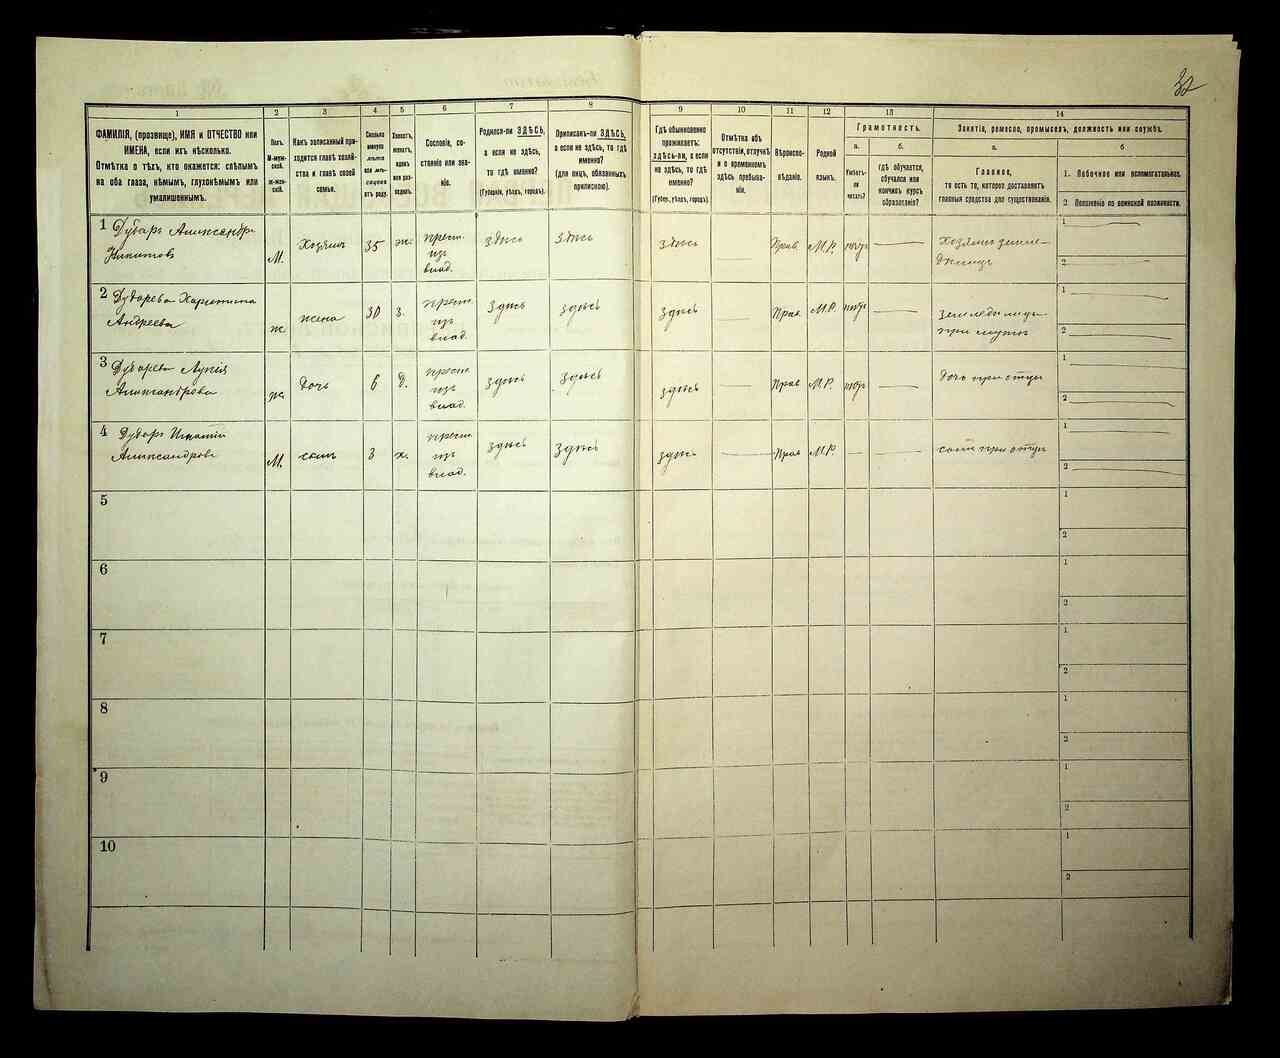 32
1
2
3
4
5
6
7
8
9
10
11
12
13
14
ФАМИЛІЯ, (прозвище), ИМЯ и ОТЧЕСТВО или
ИМЕНА, если ихъ нѣсколько.
Отмѣтка о тѣхъ, кто окажется: слѣпымъ
на оба глаза, нѣмымъ, глухонѣмымъ или
умалишеннымъ.
Полъ.
М-муж-
ской.
Ж-жен-
скій.
Какъ записанный при-
ходится главѣ хозяй-
ства и главѣ своей
семьи.
Сколько
минуло
лѣтъ
или мѣ-
сяцевъ
отъ роду.
Холостъ,
женатъ,
вдовъ
или раз-
веденъ.
Сословіе, со-
стояніе или зва-
ніе.
Родился-ли ЗДѢСЬ,
а если не здѣсь,
то гдѣ именно?
(Губернія, уѣздъ, городъ).
Приписанъ-ли ЗДѢСЬ,
а если не здѣсь, то гдѣ
именно?
(для лицъ, обязанныхъ
припискою).
Гдѣ обыкновенно
проживаетъ:
здѣсь-ли, а если
не здѣсь, то гдѣ
именно?
(Губер., уѣздъ, городъ).
Отмѣтка объ
отсутствіи, отлучкѣ
и о временномъ
здѣсь пребыва-
ніи.
Вѣроиспо-
вѣданіе.
Родной
языкъ.
Грамотность.
а.
Умѣетъ-
ли
читать?
б.
гдѣ обучается,
обучался или
кончилъ курсъ
образованія?
Занятіе, ремесло, промыселъ, должность или служба.
а.
Главное,
то есть то, которое доставляетъ
главныя средства для существованія.
б
1. Побочное или вспомогательное.
2 Положеніе по воинской повинности.
1 Дубарь Александръ
Никитовъ
М. Хозяинъ 35 ж. крест.
изъ
влад. здѣсь здѣсь здѣсь Прав М.Р. негр Хозяинъ земле-
дѣлецъ
1
2
2 Дубарева Харитина
Андреева
ж жена 30 з. крест.
изъ
влад. здѣсь здѣсь здѣсь Прав М.Р. негр
при мужѣ
1
2
3 Дубарева Лукія
Александрова
ж дочь 6 д. крест.
изъ
влад. здѣсь здѣсь здѣсь Прав М.Р. негр дочь при отцѣ
1
2
4 Дубарь Игнатій
Александровъ
М. сынъ 3 х. крест.
изъ
влад. здѣсь здѣсь здѣсь Прав М.Р. сынъ при отцѣ
1
2
5
1
2
6
1
2
7
1
2
8
1
2
9
1
2
10
1
2